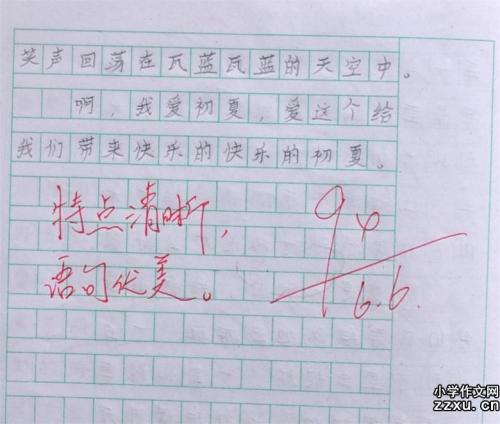 笑声回荡在瓦蓝瓦蓝的天空中。
啊，我爱初夏，爱这个给
我们带来快乐的快乐的初夏。
特点清晰，
语句优美。
94
6.6.
小学作文网
zzxu.cn